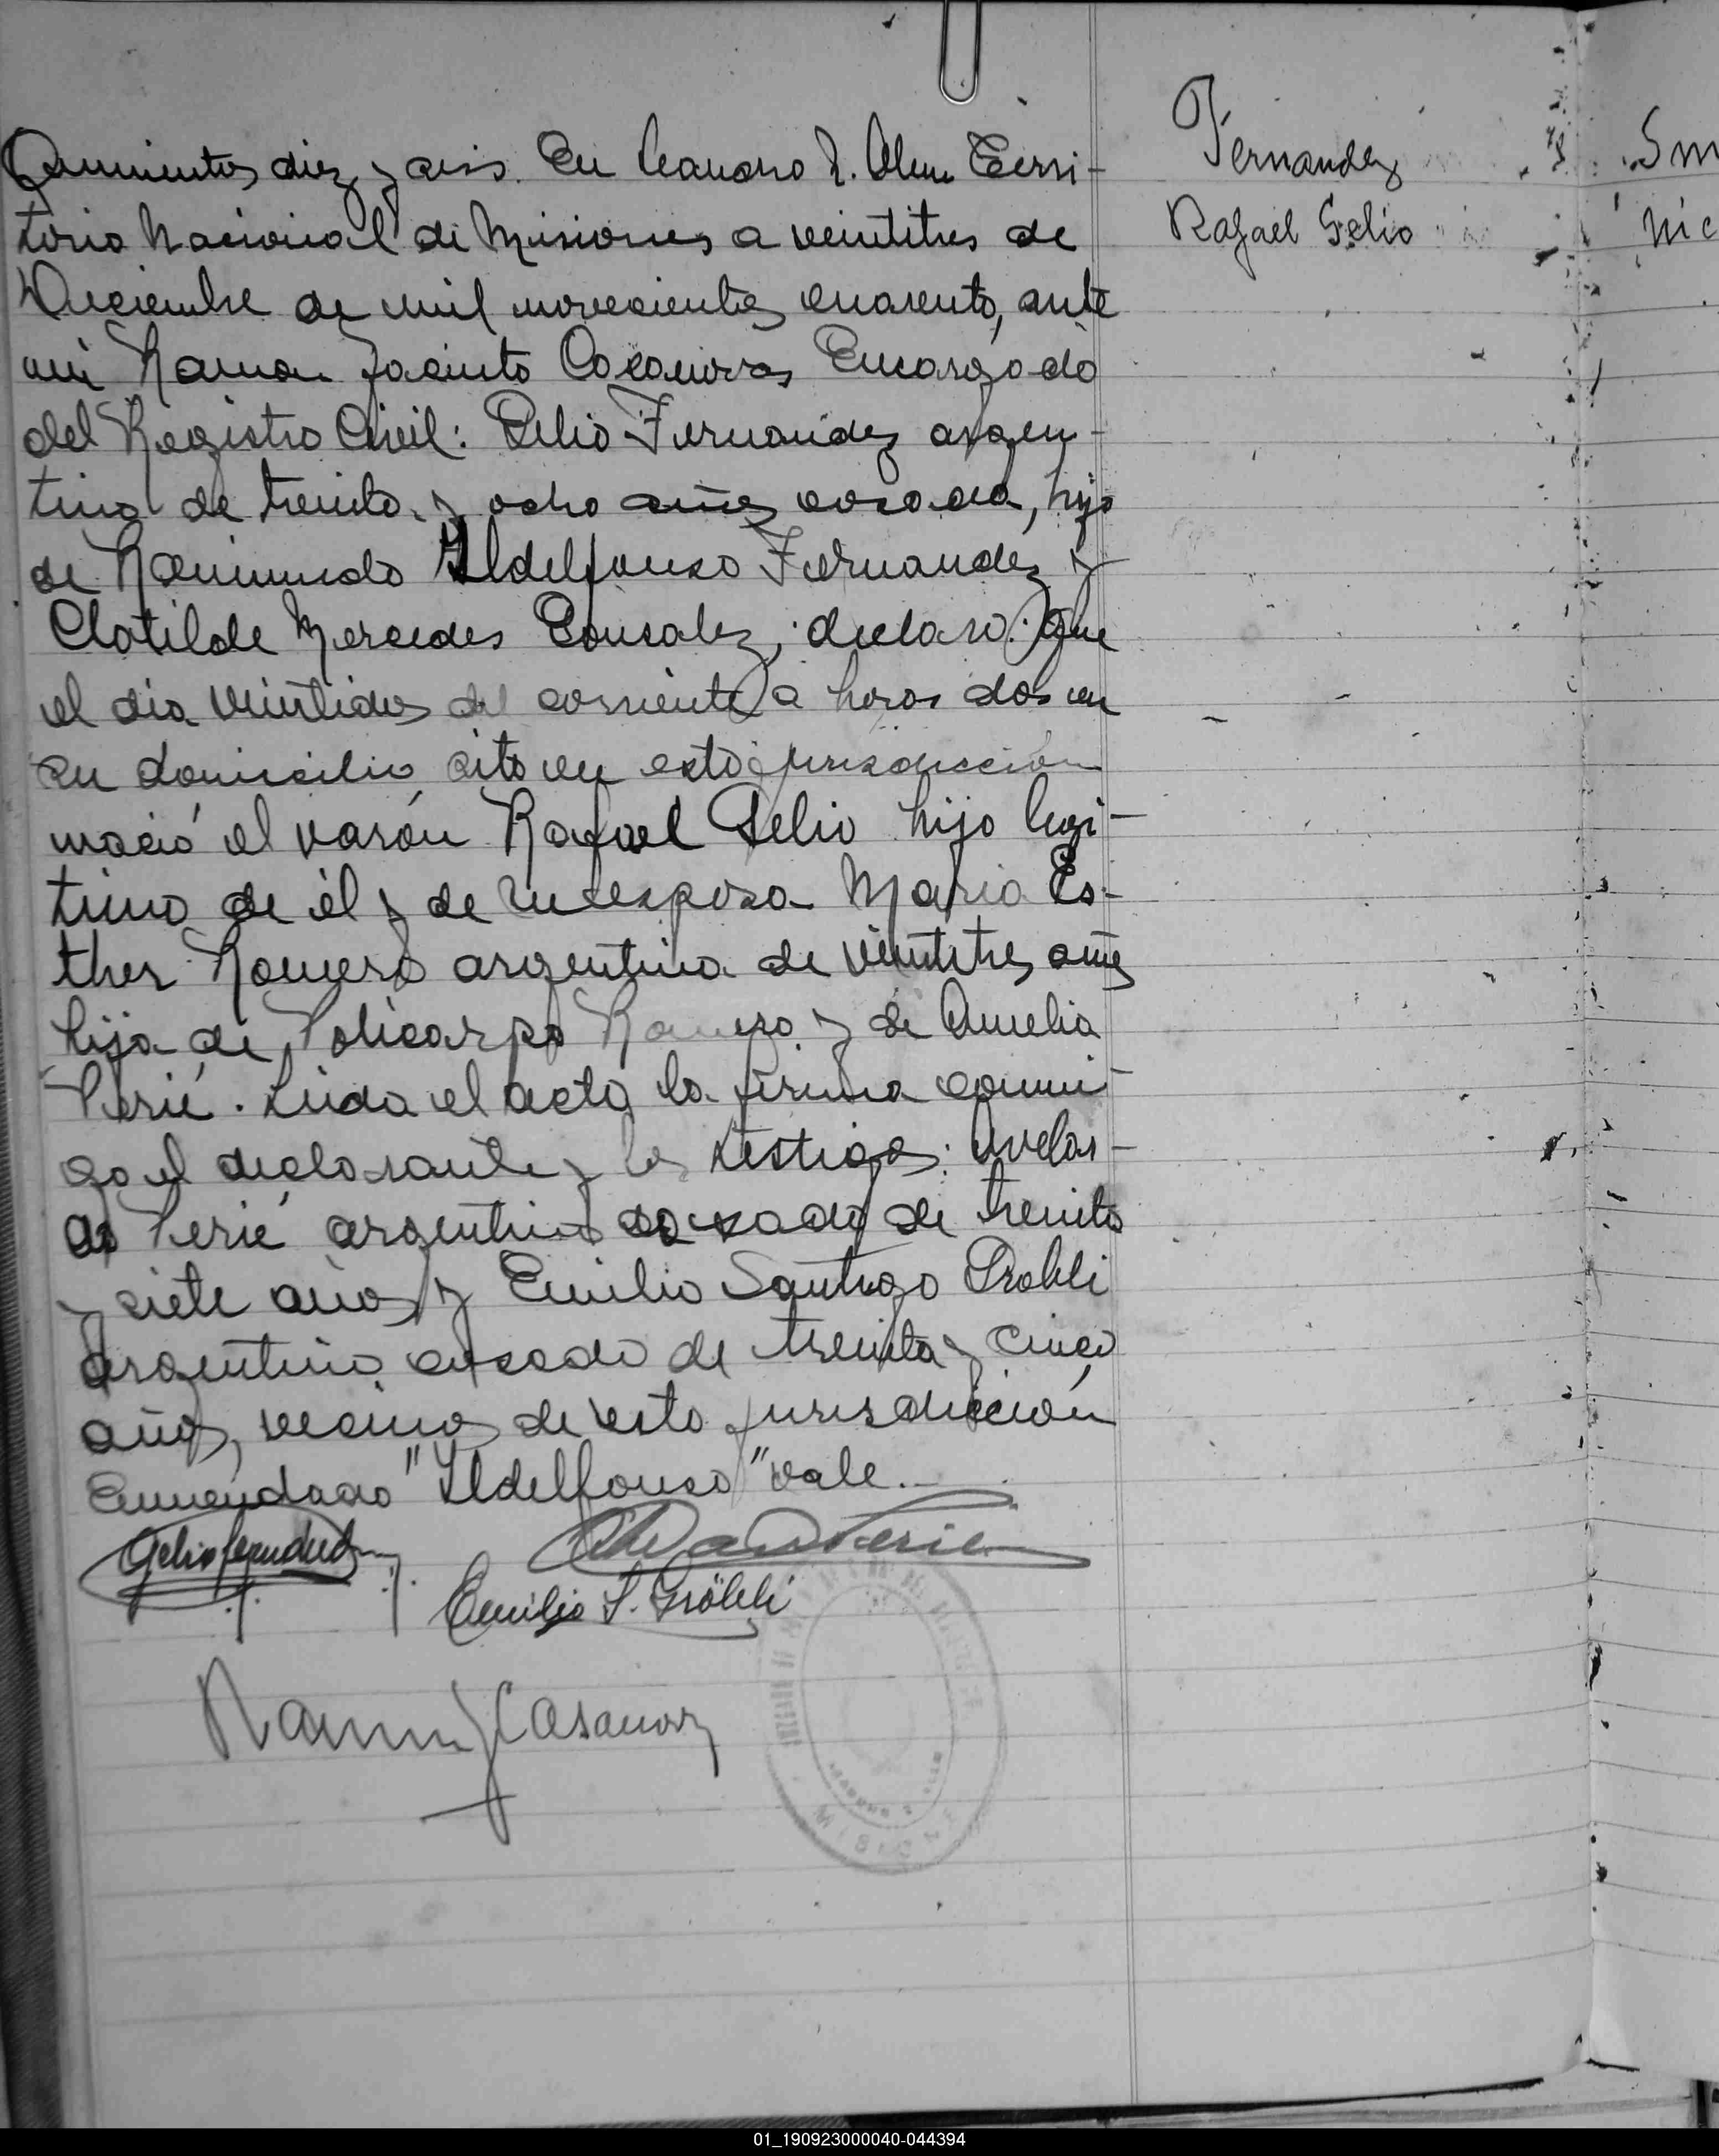 Quinientos diez y seis. En Leandro N. Alem Terri-
torio Nacional de Misiones a veintitres de
Diciembre de mil novecientos cuarenta, ante
mi Ramon Jacinto Casanovas Encargado
del Registro Civil: Gelio Fernandez argen-
tino de treinta y ocho años casado, hijo
de Raimundo Ildelfonso Fernandez y
Clotilde Mercedes Gonzalez, declaró: Que
el dia veintidos del corriente a horas dos en
su domicilio sito en esta jurisdicción
nació el varón Rafael Gelio hijo legi-
timo de él y de su esposa Maria Es-
ther Romero argentina de veintitres años
hija de Policarpo Romero y de Amelia
Perié. Leida el acta la firma conmi-
go el declarante y los testigos:
Perié argentino casado de treinta
y siete años y Emilio Santiago Grobli
argentino casado de treinta y cinco
años, vecinos de esta jurisdicción
Enmendado "Ildelfonso" vale.
Gelio Fernandez
Perié
Emilio S. Gröbli
Ramon J Casanovas
MISIONES
Fernandez
Rafael Gelio
Sm
Nic
01_190923000040-044394